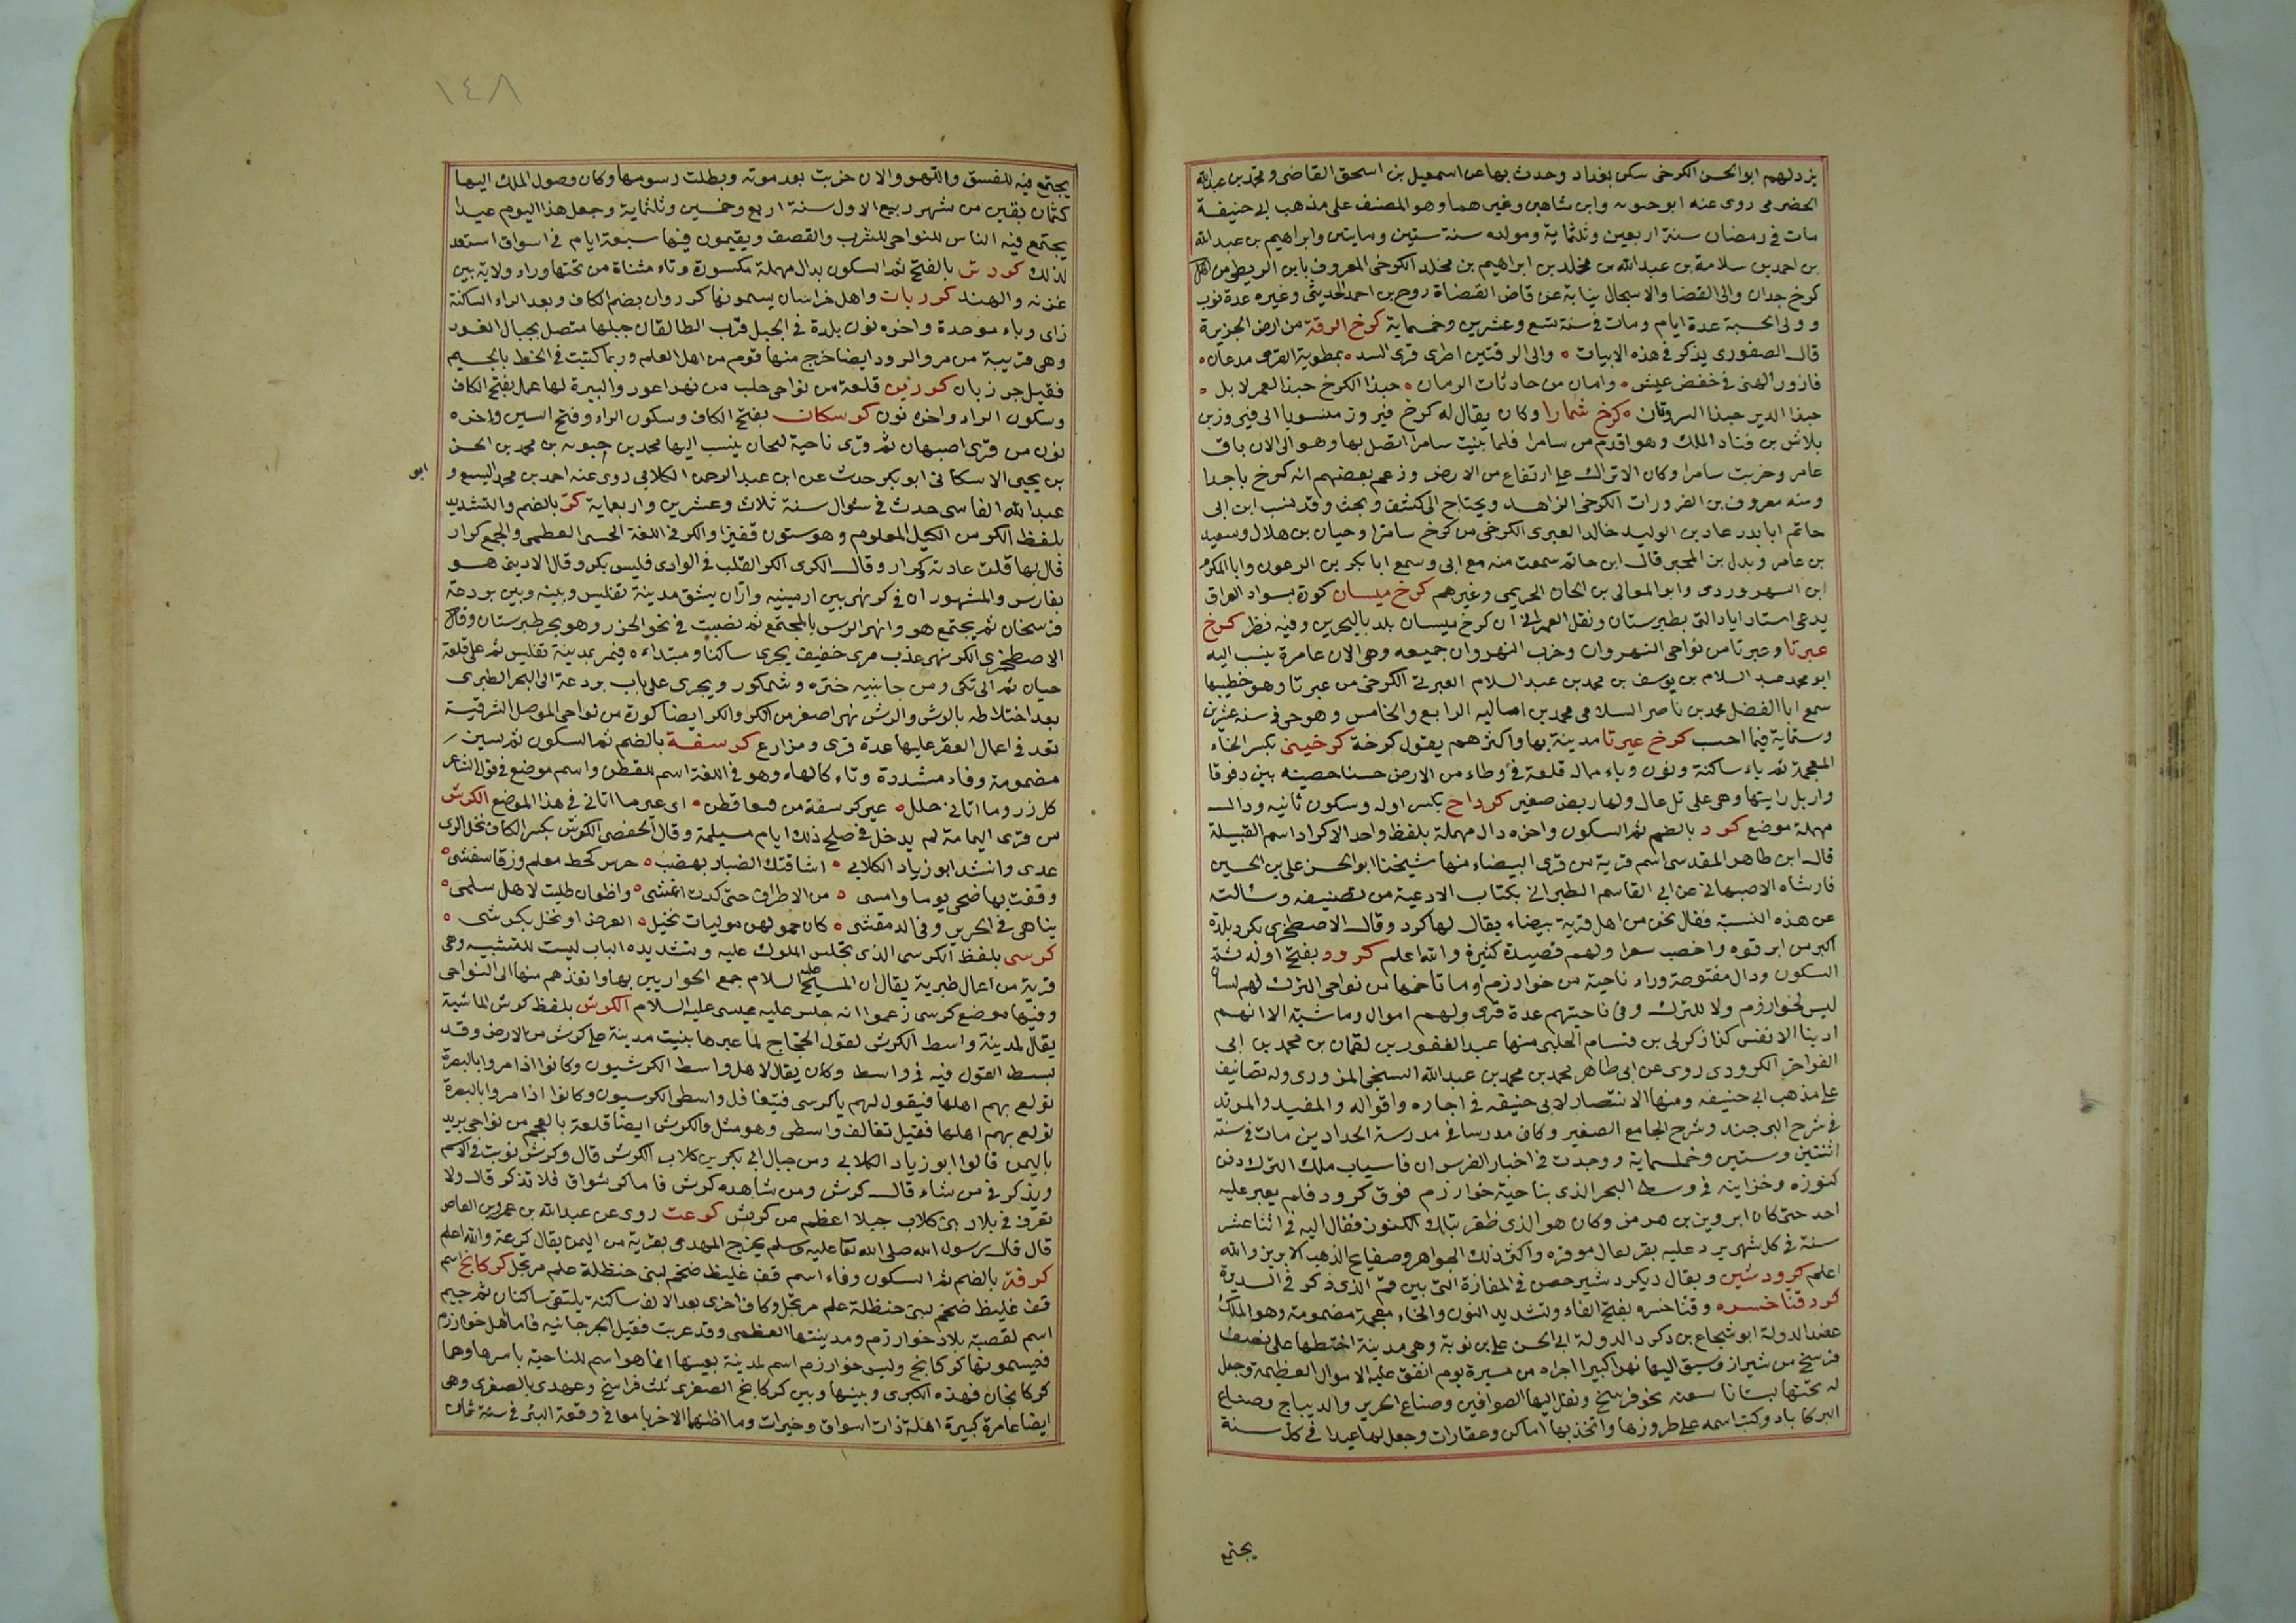 يزدلهم ابو الحسن الكرخى سكن بغداد وحدث بها عن اسمعيل بن اسحق القاضى ومحمد بن عبد الله
الحضرمى روى عنه ابو حيويه وابن شاهين وغيرهما وهو المصنف على مذهب ابى حنيفة
مات فى رمضان سنة اربعين وثلثماية ومولده سنة ستين ومايتين وابراهيم بن عبد الله
بن احمد بن سلامة بن عبد الله بن مخلد بن ابراهيم بن مخلد الكرخى المعروف بابن الرطبى من اهل
كرخ جدان والى القضا والاسجال نيابة عن قاضى القضاة روح بن احمد الحديثى وغيره عدة نوب
وولى الحسبة عدة ايام ومات فى سنة سبع وعشرين وخمسماية كرخ الرقة من ارض الجزيرة
قال الصنوبرى يذكر فى هذه الابيات ه والى الرقتين اطوى قرى البيد ه بمطوية القرى مدعان ه
فازور الهنى فى خفض عيش ه وامان من حادثات الزمان ه حبذا الكرخ حبذا العمر لا بل ه
حبذا الدير حبذا السروتان ه كرخ سامرا وكان يقال له كرخ فيروز منسوبا الى فيروز بن
بلاش بن قباد الملك وهو اقدم من سامرا فلما بنيت سامرا اتصل بها وهو الى الان باق
عامر وخربت سامرا وكان الاتراك على ارتفاع من الارض وزعم بعضهم انه كرخ باجدا
ومنه معروف بن الفرورات الكرخى الزاهد ويحتاج الى كشف وبحث وقد نسب ابن ابى
حاتم ابا بدر عباد بن الوليد خالد الغبرى الكرخى من كرخ سامرا وحبان بن هلال وسعيد
بن عامر وبدل بن المحبر قال ابن حاتم سمعت منه مع ابى وسمع ابا بكر بن الزعون وابا المكرم
ابن السهروردى وابو المعالى بن الحان الحريمى وغيرهم كرخ ميسان كورة بسواد العراق
يدعى استاد اياد التى بطبرستان ونقل العمرانى ان كرخ ميسان بلد بالبحرين وفيه نظر كرخ
عبرتا وعبرتا من نواحى النهروان وخرب النهروان جميعه وهى الان عامرة ينسب اليه
ابو محمد عبد السلام بن يوسف بن محمد بن عبد السلام العبرتى الكرخى من عبرتا وهو خطيبها
سمع ابا الفضل محمد بن ناصر السلامى محمد بن اماليه الرابع والخامس وهو حى فى سنة عشرين
وستماية فيما احسب كرخ عيرتا مدينة بها واكثرهم يقول كرخة كرخينى بكسر الخاء
المعجمة ثم ياء ساكنة ونون وياء ماله قلعة فى وطاء من الارض حسنا حصينه بين دقوقا
واربل رايتها وهى على تل عال ولها ربض صغير كرداح بكسر اوله وسكون ثانيه ودال
مهملة موضع كرد بالضم ثم السكون واخره دال مهملة بلفظ واحد الاكراد اسم القبيلة
قال ابن طاهر المقدسى اسم قرية من قرى البيضاء منها شيخنا ابو الحسن على بن الحسين
فارشاه الاصبهانى عن ابى القاسم الطبرانى بكتاب الادعية من تصنيفه وسالته
عن هذه النسبة فقال نحن من اهل قرية بيضاء يقال لها كرد وقال الاصطخرى كرد بلدة
اكبر من ابرقوه واخصب سعرا ولهم قصيدة كثيرة والله اعلم كردر بفتح اوله ثم
السكون ودال مفتوحة وراء ناحية من خوارزم او ما تاخمها من نواحى الترك لهم لسان
ليس لخوارزم ولا للترك وفى ناحيتهم عدة قرى ولهم اموال وماشية الا انهم
ادنيا الانفس كذا ذكر لى بن قسام الحلبى منها عبد الغفور بن لقمان بن محمد بن ابى
الفواخر الكردرى روى عن ابى طاهر محمد بن محمد بن عبد الله السنجى المزورى وله تصانيف
على مذهب ابى حنيفه ومنها الانتصار لابى حنيفه فى اجاره واقواله والمفيد والمزيد
فى شرح التجريد وشرح الجامع الصغير وكان مدرسا فى مدرسة الحدادين مات فى سنة
اثنتين وستين وخمسماية ووجدت فى اخبار الفرس ان فاسياب ملك الترك دفن
كنوزه وخزاينه فى وسط البحر الذى بناحية خوارزم فوق كردر فلم يعبر عليه
احد حتى كان ابرويز بن هرمز وكان هو الذى ظفر بتلك الكنوز فقال اليه فى اثنا عشر
سنة فى كل شهر يرد عليه بقر بغال موقره واكثر ذلك الجواهر وصفيايح الذهب الابريز والله
اعلم كردشير ويقال ديكرد شير حصن فى المفازة التى بين قم الذى ذكر فى السيرة
كرد فناخسره وفناخسره بفتح الفاء وتشديد النون والخاء معجمة مضمومة وهو الملك
عضد الدولة ابو شجاع بن ركن الدولة ابى الحسن على بن بويه وهى مدينة اختطها على نصف
فرسخ من شيراز وسيق اليها نهرا كبيرا اجراه من مسيرة يوم انفق عليه الاموال العظيمة وجعل
له تحتها بستانا سعته نحو فرسخ ونقل اليها الصوافين وصناع الحرير والديباج وصناع
البركا باد وكتب اسمه على طروزها واتخذ بها اماكن وعقارات وجعل لها عيدا فى كل سنة
يجتمع
١٤٨
يجتمع فيه للفسق واللهو والان خربت بعد موته وبطلت رسومها وكان وصول الملك اليها
لثمان بقين من شهر ربيع الاول سنة اربع وخمسين وثلثماية وجعل هذا اليوم عيدا
يجتمع فيه الناس للنواحى للشرب والقصف ويقيمون فيها سبعة ايام فى اسواق استعد
لذلك كردت بالفتح ثم السكون بدال مهملة مكسورة وتاء مثناة من تحتها وراء ولاية بين
غزنه والهند كرزبات واهل خراسان يسمونها كرزوان بضم الكاف وبعد الراء الساكنة
زاى وباء موحدة واخره نون بلدة فى الجبل قرب الطالقان جبلها متصل بجبال الغور
وهى قريبة من مرو الرود ايضا خرج منها قوم من اهل العلم وربما كتبت فى الخط بالجيم
فقيل جرزبان كرزين قلعة من نواحى حلب من نهر اعور والبيرة لها عمل بفتح الكاف
وسكون الراء واخره نون كرسكان بفتح الكاف وسكون الراء وفتح السين واخره
نون من قرى اصبهان ثم قرى ناحية لنحان ينسب اليها محمد بن حيويه بن محمد بن الحسن
بن يحيى الاسكانى ابو بكر حدث عن ابن عبد الرحمن الكلابى روى عنه احمد بن محمد البيع و
ابى
عبد الله الفاسى حدث فى شوال سنة ثلاث وعشرين واربعماية كر بالضم والتشديد
بلفظ الكر من الكيل المعلوم وهو ستون قفيزا والكر فى اللغة الحسى العظيم والجمع كرار
قال بها قلت عادته كرار وقال الكرى الكر القلب فى الوادى فليس بكر وقال الاديبى هو
بفارس والمشهور ان فى كر نهر بين ارمينيه وآران يشق مدينة تفليس وبينه وبين بردعة
فرسخان ثم يجتمع هو وانهر الرس بالمجتمع ثم تضببت فى نحو الخزر وهو بحر طبرستان وقال
الاصطخرى الكر نهر عذب مرى خفيف يجرى ساكنا ومبتداءه فيمر بمدينة تفليس ثم على قلعة
حيان ثم الى تكى ومن جانبيه خنزه وشمكور ويجرى على باب بردعة الى البحر الطبرى
بعد اختلاطه بالرش والرش نهر اصغر من الكر والكر ايضا كورة من نواحى الموصل الشرقية
تعد فى اعمال العقر عليها عدة قرى ومزارع كرسفة بالضم ثم السكون ثم سين
مضمومة وفاء مشددة وتاء كالهاء وهو فى اللغة اسم للقطن واسم موضع فى قول الشاعر
كل زر وما اتانى خلل ه غير كرسفة من قعا قطن ه اى غير ما اتانى فى هذا الموضع الكرش
من قرى اليمامة لم يدخل فى صلح ذلك ايام مسيلمة وقال الحفصى الكرش بكسر الكاف نخل لبنى
عدى وانشد ابو زياد الكلابى ه اشاقتك الضبار بهضب ه حرس كخط معلم ورقا سفشى ه
وقفت بها ضحى يوما وامسى ه من الاطراق حتى كدت اغشى ه واظعان طلبت لاهل سلمى ه
يناهى فى الحرير وفى الدمقشى ه كان حمولهن موليات نخيل ه العرض او نخل بكرشى ه
كرسى بلفظ الكرسى الذى تجلس الملوك عليه وتشديده الياء ليست للنسبه وهى
قرية من اعمال طبرية يقال ان المسيح عليه السلام جمع الحواريين بها وانفذهم منها الى النواحى
وفيها موضع كرسى زعموا انه جلس عليه عيسى عليه السلام الكرش بلفظ كرش الماشية
يقال لمدينة واسط الكرش لقول الحجاج لما عبرها بنيت مدينة على كرش من الارض وقد
بسط القول فيه فى واسط وكان يقال لاهل واسط الكرشيون وكانوا اذا مروا بالبصرة
تولع بهم اهلها فيقول لهم ياكرسى فيتغافل واسطى الكرسيون وكانوا اذا مروا بالبصرة
تولع بهم اهلها فقيل تغالف واسطى وهو مثل والكرش ايضا قلعة بالعجم من نواحى بريد
باليمن قالوا ابو زياد الكلابى ومن جبال ابى بكر بن كلاب الكرش قال وكرش توبت فى الاسم
ويذكر فى من شاء قال كرش ومن شاهده كرش فاما كرشواق فلا تذكر قال ولا
تعرف فى بلاد بنى كلاب جبلا اعظم من كرش كرعت روى عن عبد الله بن عمرو بن العاص
قال قال رسول الله صلى الله تعا عليه وسلم يخرج المهدى بقرية من اليمن يقال كرعة والله اعلم
كرفة بالضم ثم السكون وفاء اسم قف غليظ ضخم لبنى حنظلة علم مرتجل كركانج اسم
قف غليظ ضخم لبنى حنظلة علم مرتجل وكاف اخرى بعد الالف ساكنة يلتقى ساكنان ثم جيم
اسم لقصبة بلاد خوارزم ومدينتها العظمى وقد عربت فقيل الجرجانيه فاما اهل خوارزم
فيسمونها كركانج وليس خوارزم اسم لمدينة بعينها انما هو اسم للناحية باسرها وهما
كركانجان فهذه الكبرى وبينها وبين كركانج الصغرى ثلث فراسخ وعهدى بالصغرى وهى
ايضا عامرة كبيرة اهلة ذات اسواق وخيرات وما اظنها الا خربا معا فى وقعة التتر فى سنة ثمان